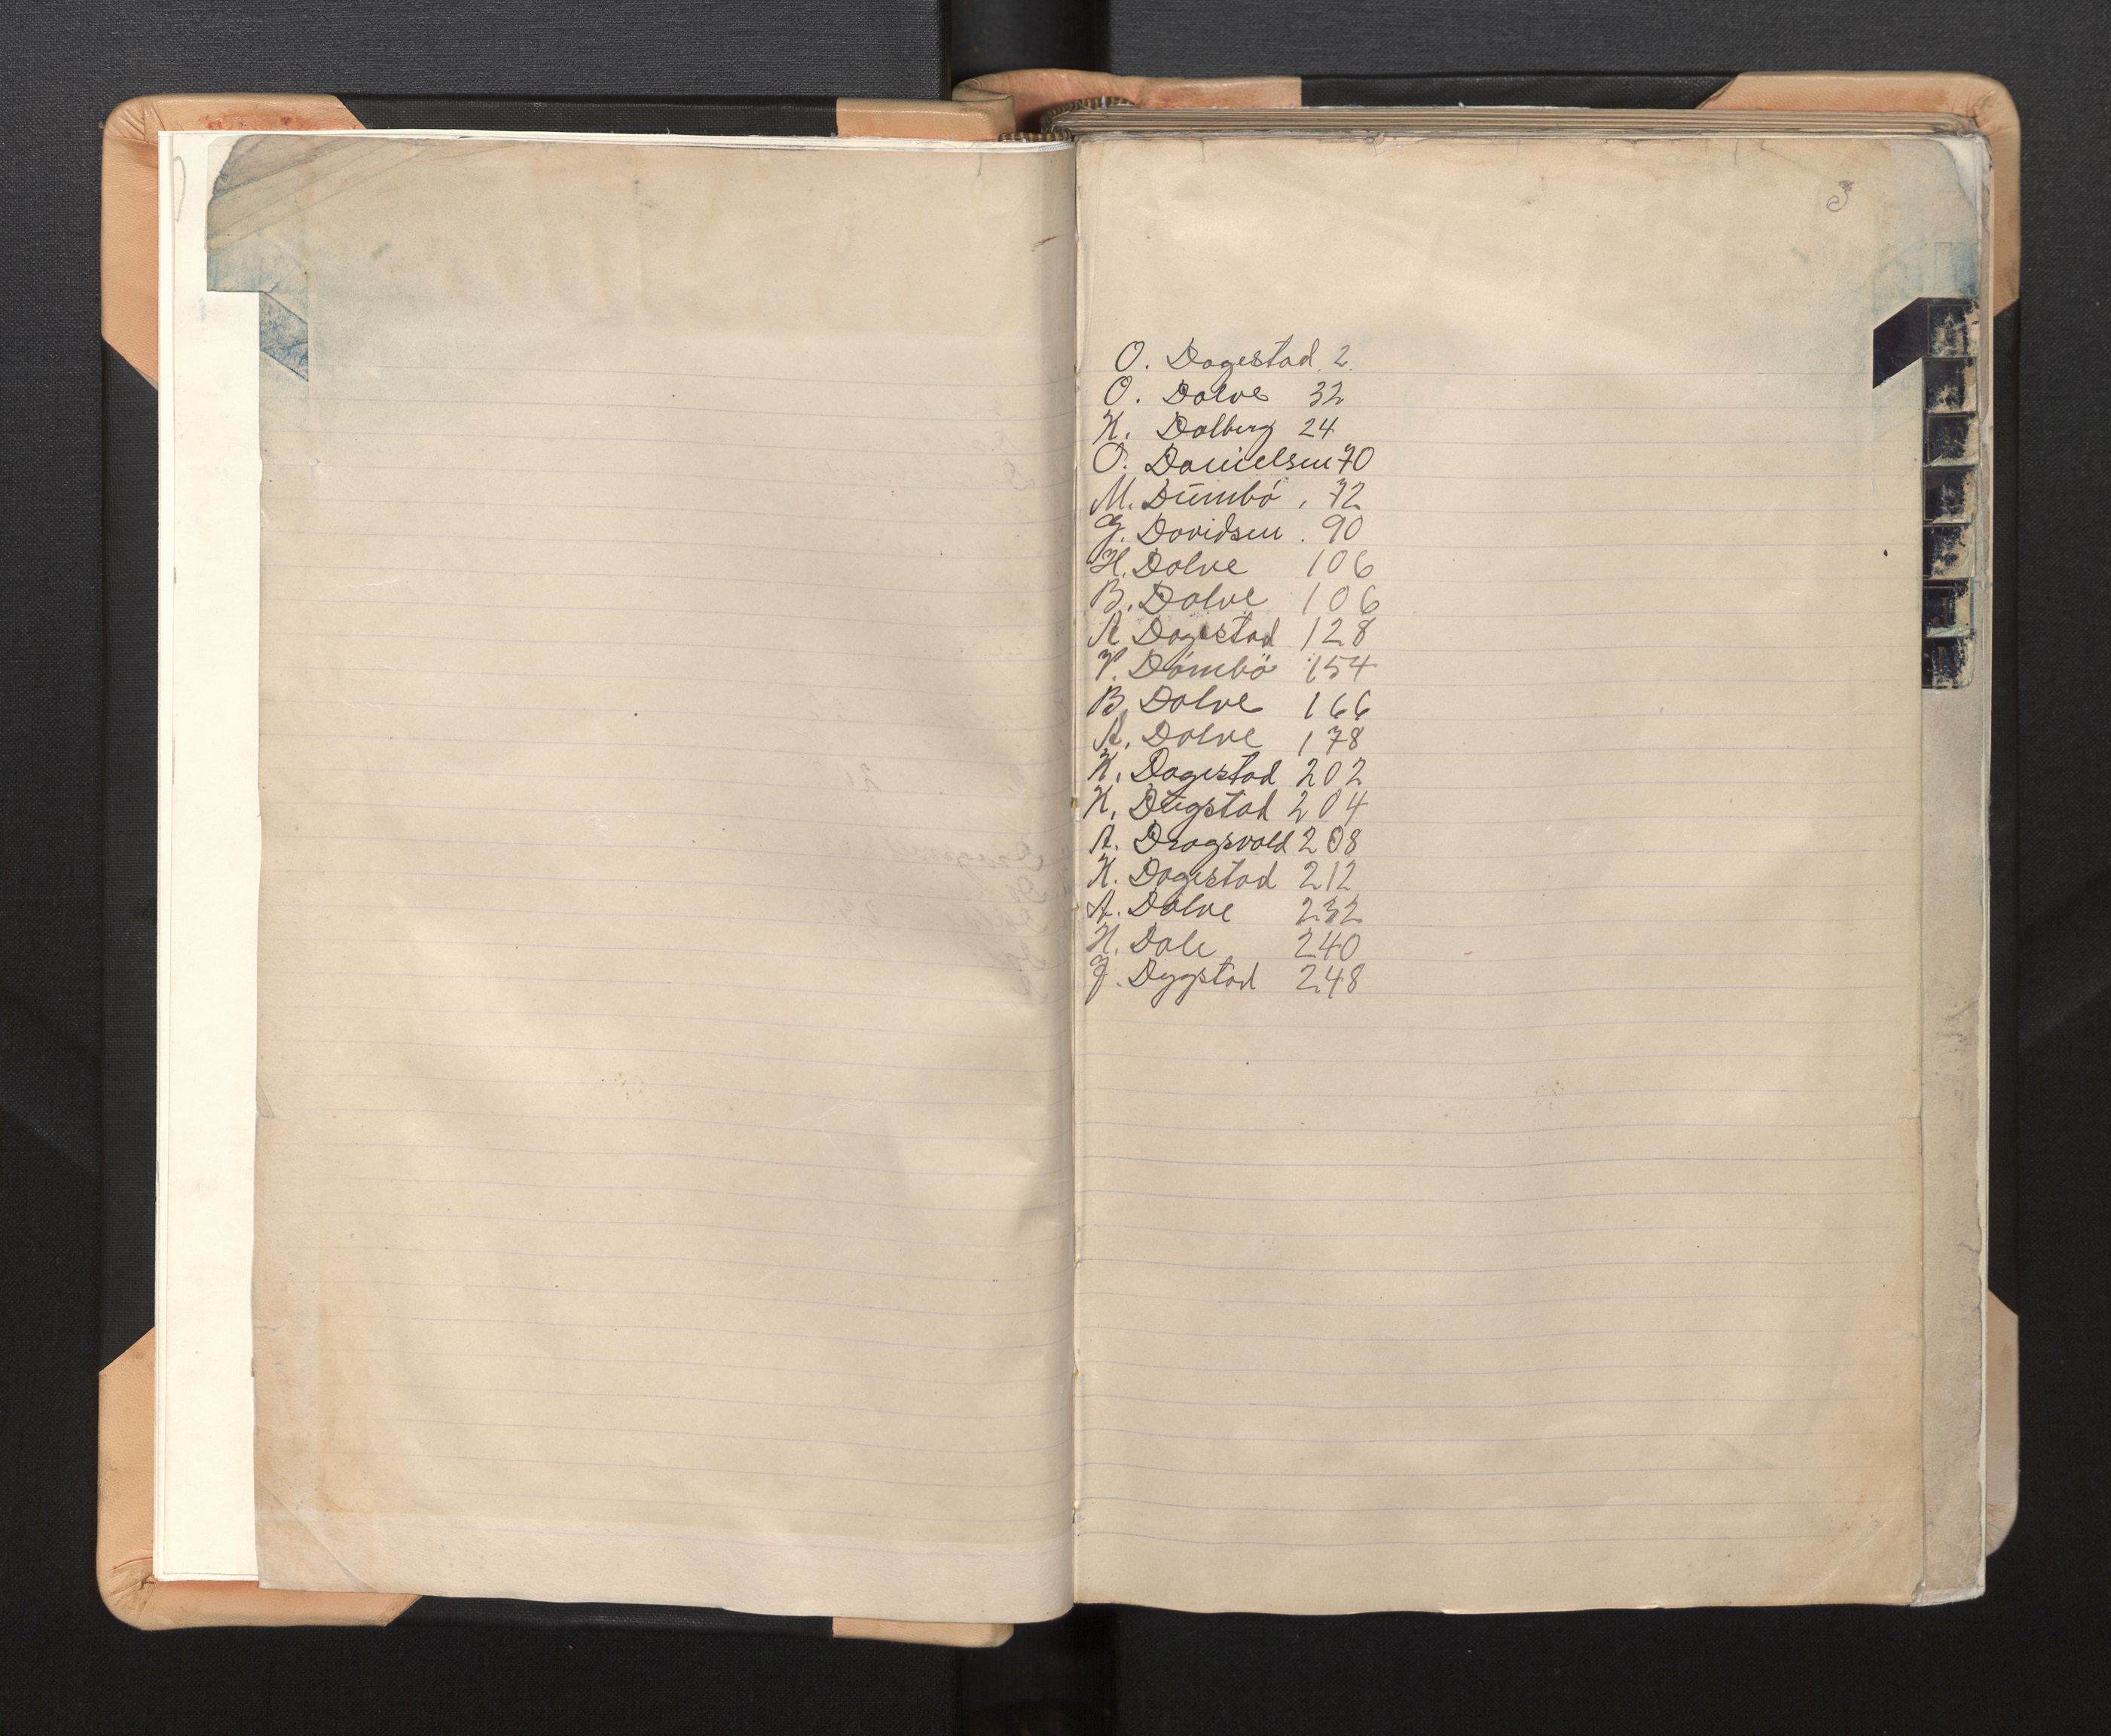 3
O. Dagestad 2
O. Dalve 32
K. Dalberg 24
O. Danielsen 70
M. Dŭmbó, 72
G. Davidsen. 90
H. Dolve 106
B. Dolve 106
A. Dagestad 128
P. Dómbö 154
B. Dolve 166
A. Dolve 178
K. Dagestad 202
K. Dŭgstad 204
A. Dragsvold 208
K. Dagestad 212
A. Dolve 232
H. Dale 240
J. Dygstad 248